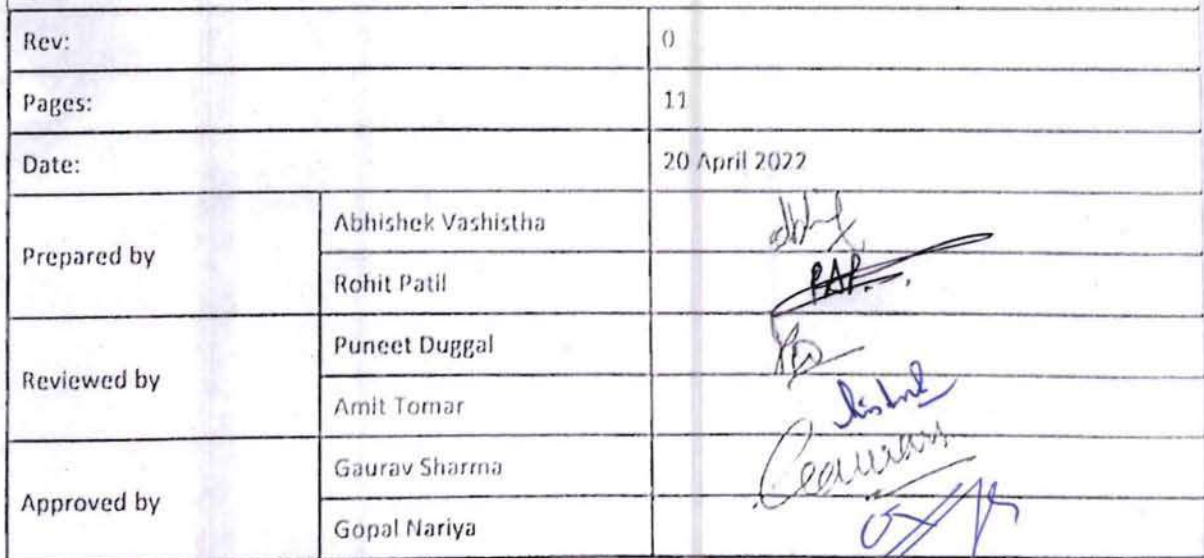 Rev: 0
Pages: 11
Date: 20 April 2022
Prepared by
Abhishek Vashistha
Rohit Patil
Reviewed by
Puneet Duggal
Amit Tomar
Approved by
Gaurav Sharma
Gopal Nariya